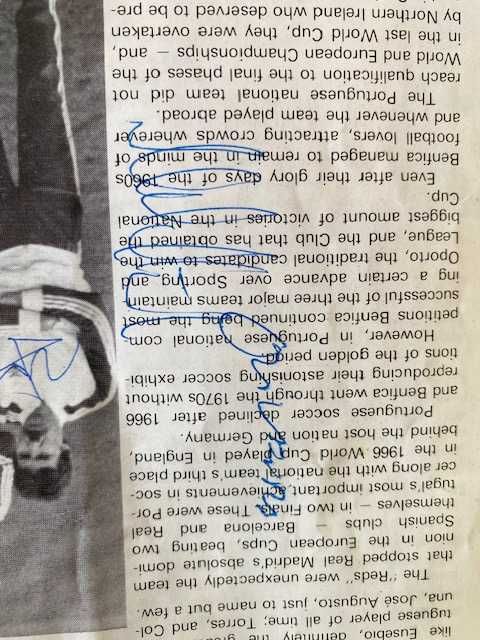 like Eusebio, definitely the
tuguese player of all time; Torres, and Col-
una, José Augusto, just to name but a few.
The "Reds" were unexpectedly the team
that stopped Real Madrid's absolute domi-
nion in the European Cups, beating two
Spanish clubs – Barcelona and Real
themselves – in two Finals. These were Por-
tugal's most important achievements in soc-
cer along with the national team's third place
in the 1966 World Cup played in England,
behind the host nation and Germany.
Portuguese soccer declined after 1966
and Benfica went through the 1970s without
reproducing their astonishing soccer exhibi-
tions of the golden period.
However, in Portuguese national com-
petitions Benfica continued being the most
successful of the three major teams maintain-
ing a certain advance over Sporting and
Oporto, the traditional candidates to win the
League, and the Club that has obtained the
biggest amount of victories in the National
Cup.
Even after their glory days of the 1960s
Benfica managed to remain in the minds of
football lovers, attracting crowds wherever
and whenever the team played abroad.
The Portuguese national team did not
reach qualification to the final phases of the
World and European Championships – and,
in the last World Cup, they were overtaken
by Northern Ireland who deserved to be pre-